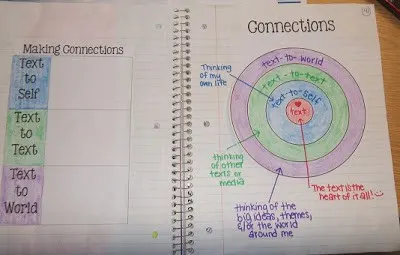 Making Connections
Text
to
Self
Text
to
Text
Text
to
World
Connections
text-to-world
text-to-text
text-to-self
text
Thinking
of my
own life
thinking
of other
texts or
media
thinking of the
big ideas, themes,
&/or the world
around me
The text is the
heart of it all!